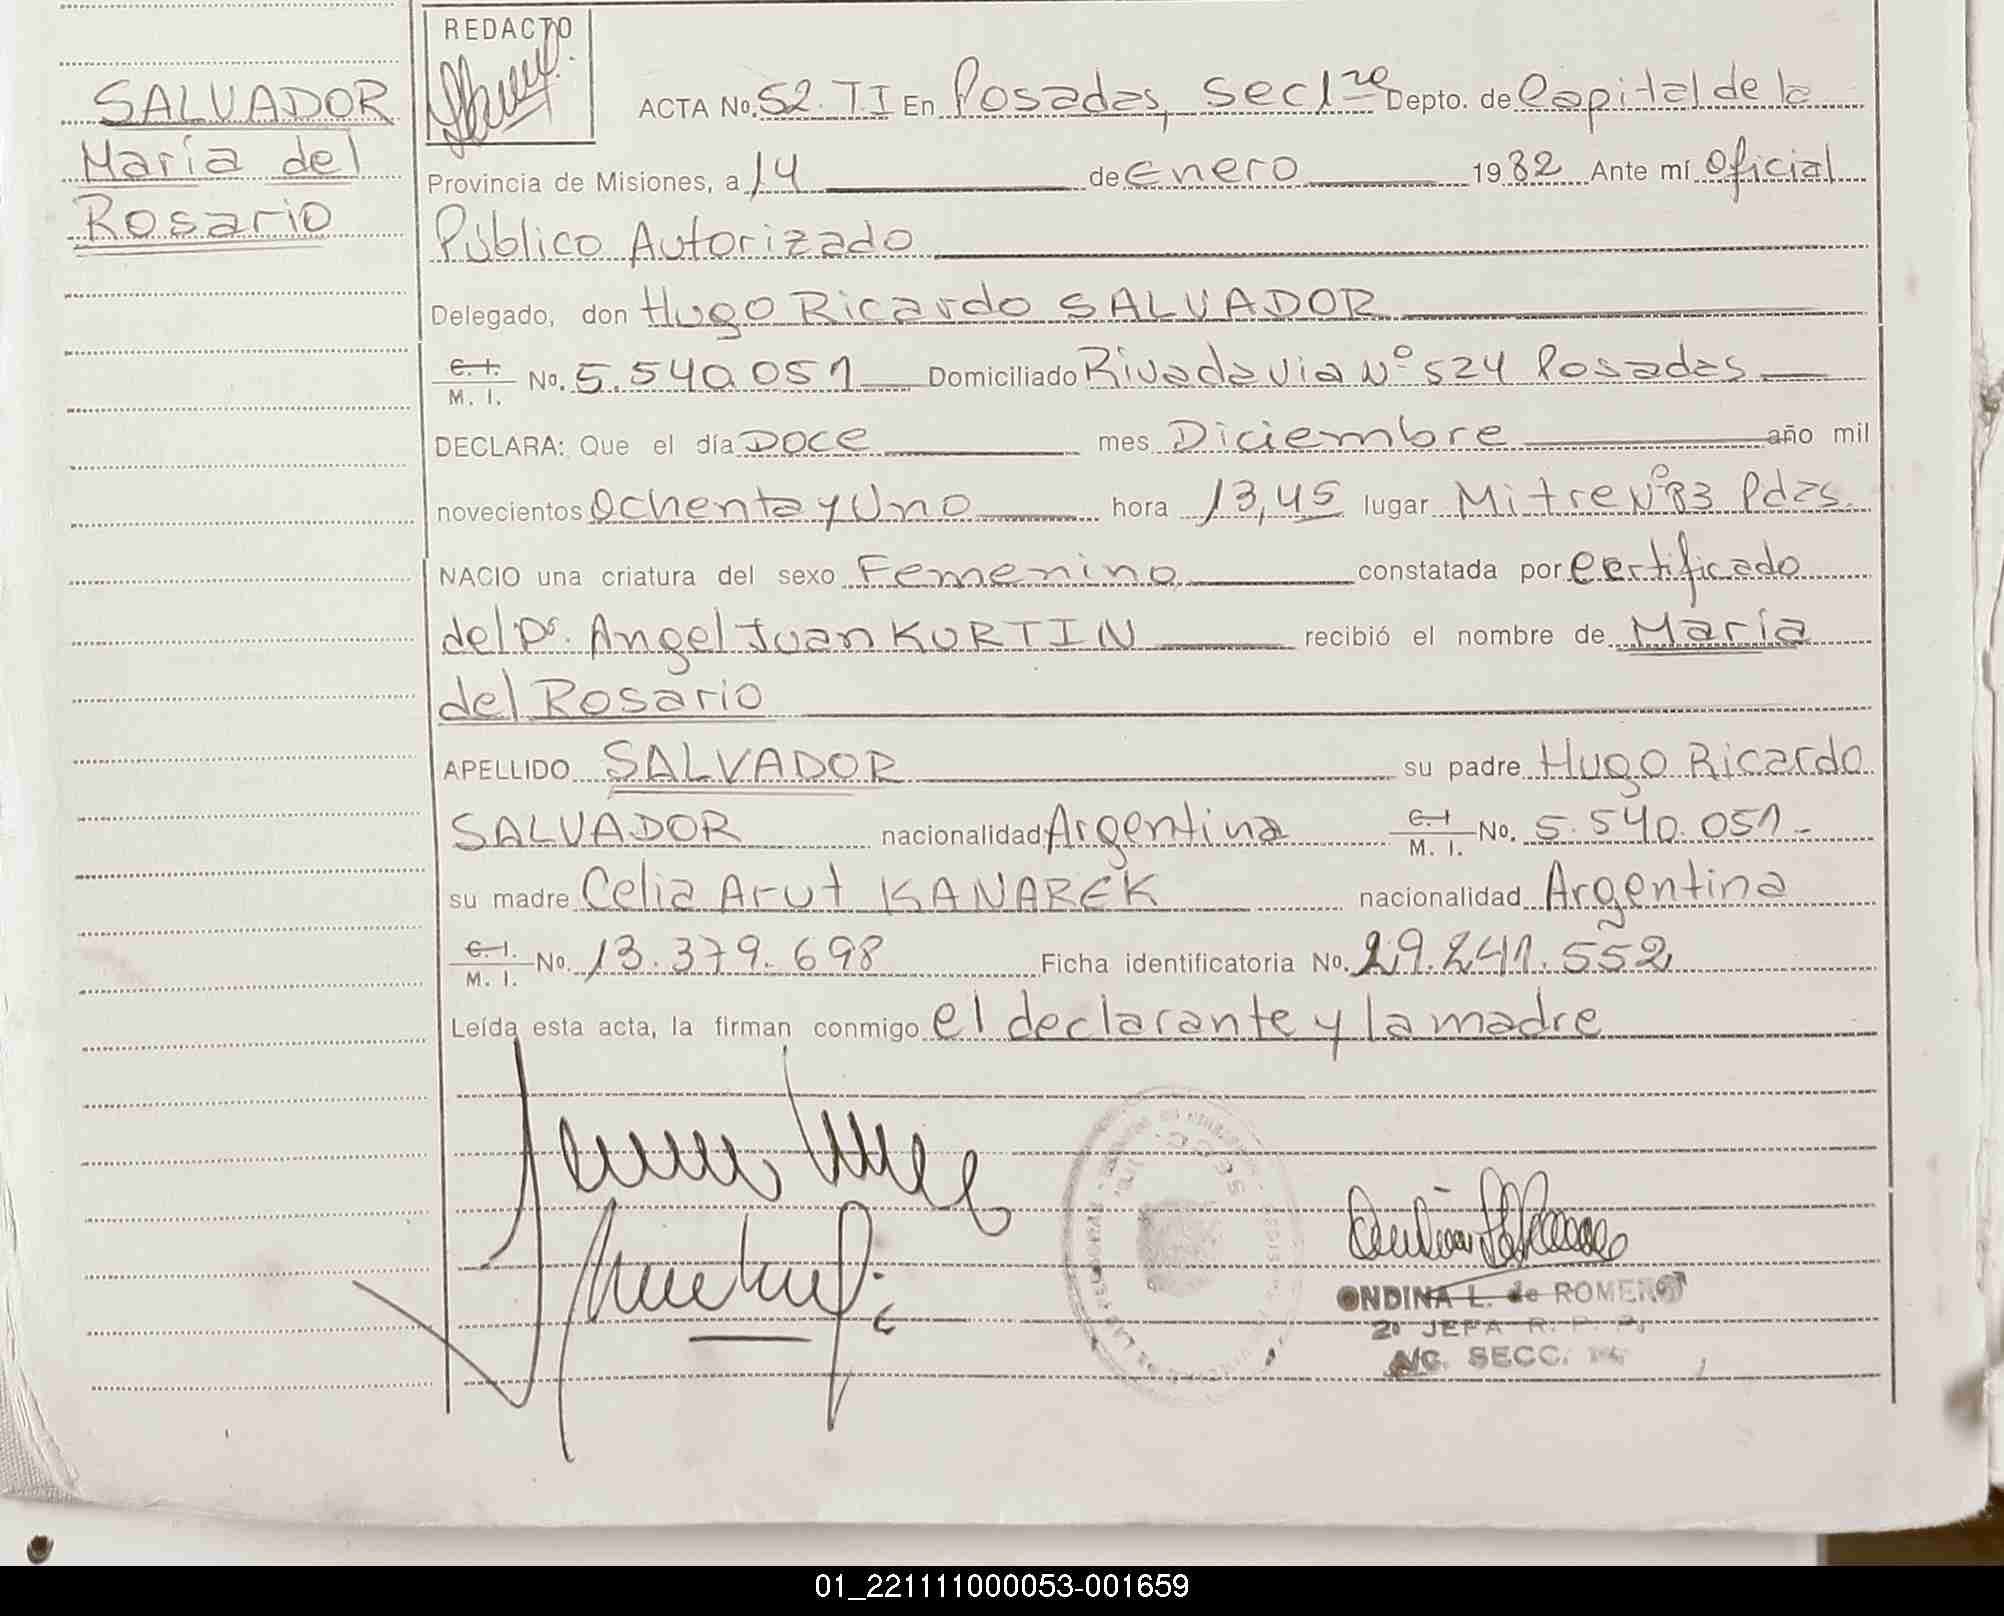 REDACTO
SALVADOR
María del
Rosario
ACTA No. 52. T I En Posadas, Sec 1ra Depto. de Capital de la
Provincia de Misiones, a 14 de Enero 1982 Ante mí Oficial
Público Autorizado
Delegado, don Hugo Ricardo SALVADOR
C. I. / M. I. No. 5.540.051 Domiciliado Rivadavia Nº 524 Posadas
DECLARA: Que el día DOCE mes Diciembre año mil
novecientos Ochenta y Uno hora 13,45 lugar Mitre Nº 83 Pdas.
NACIO una criatura del sexo Femenino, constatada por Certificado
del Dr. Angel Juan KURTIN recibió el nombre de María
del Rosario
APELLIDO SALVADOR su padre Hugo Ricardo
SALVADOR nacionalidad Argentina C. I. / M. I. No. 5.540.051.-
su madre Celia Arut KANAREK nacionalidad Argentina
C. I. / M. I. No. 13.379.698 Ficha identificatoria No. 29.241.552
Leída esta acta, la firman conmigo el declarante y la madre
SECC.
ONDINA L. de ROMERO
2º JEFA R. P. P.
A/C. SECC.
01_221111000053-001659